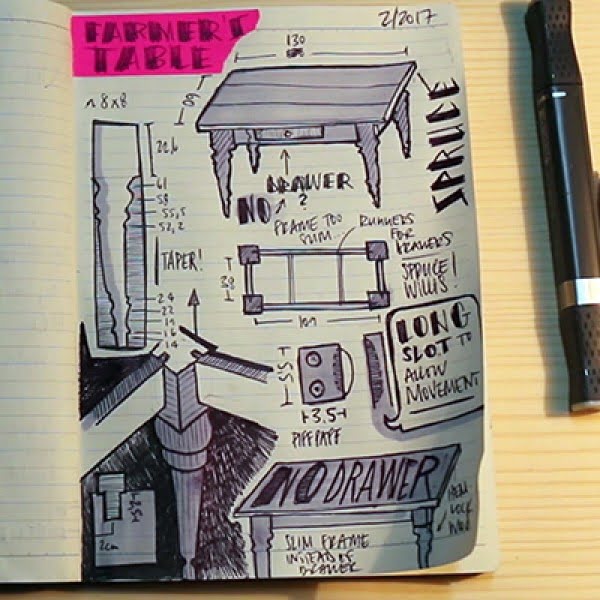 FARMER'S
TABLE
2/2017
130
60
~ 8x8
22,6
61
58
55,5
52,2
TAPER!
24
22
19
16
14
SPRUCE
DRAWER
?
NO
FRAME TOO
SLIM...
RUNNERS
FOR
DRAWERS
SPRUCE!
WILLIS!
38
107
LONG
SLOT TO
ALLOW
MOVEMENT
5.5
3.5
PIFFPAFF
NO DRAWER
2cm
SLIM FRAME
INSTEAD OF
DRAWER